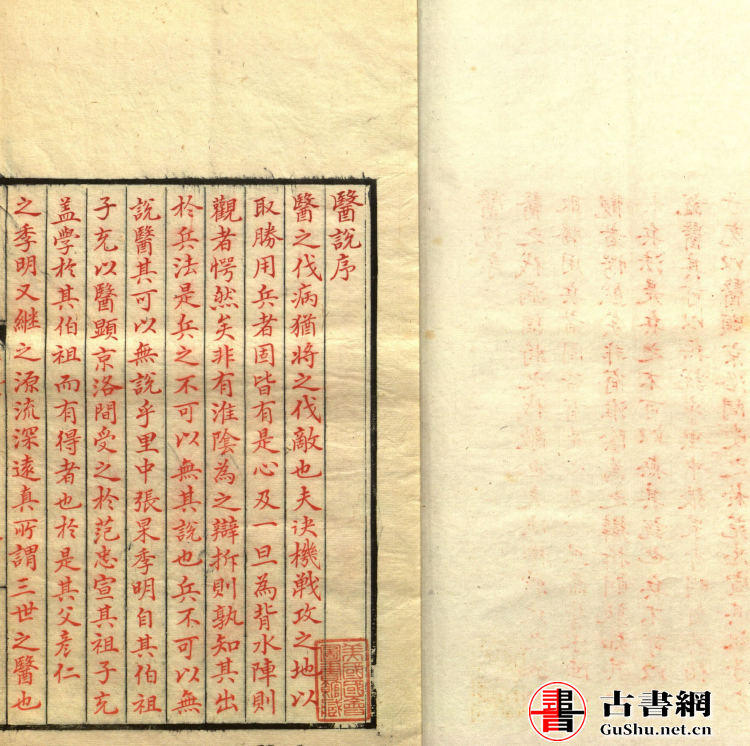 醫說序
醫之伐病猶將之伐敵也夫诀機戦攻之地以
取勝用兵者固皆有是心及一旦為背水陣則
觀者愕然矣非有淮陰為之辯拆則孰知其出
於兵法是兵之不可以無其說也兵不可以無
說醫其可以無說乎里中張杲季明自其伯祖
子充以醫顯京洛間受之於范忠宣其祖子充
盖学於其伯祖而有得者也於是其父彥仁
之季明又継之源流深遠真所謂三世之醫也
美國國會
圖書館藏
書
古書網
GuShu.net.cn